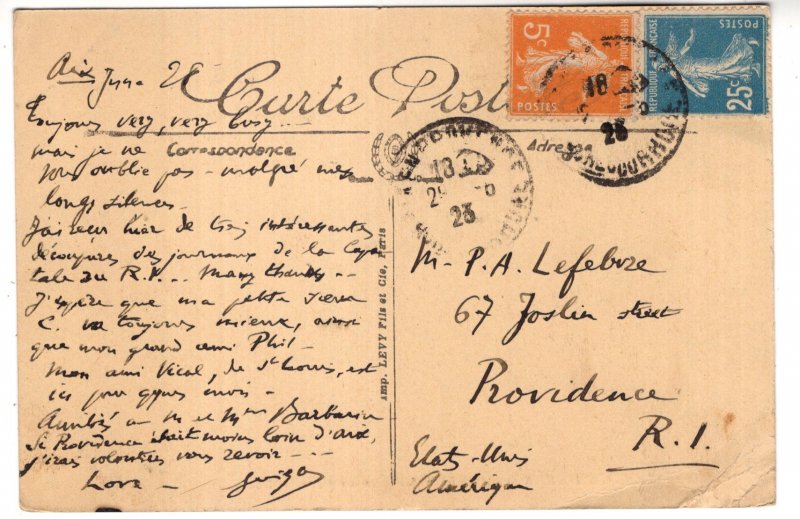 Aix
Carte Postale
Correspondence
Adresse
5c
25c
POSTES
RÉPUBLIQUE FRANÇAISE
18
23
18
23
Toujours very, very busy...
mais je ne
vous oublie pas - malgré mes
longs silences -
J'ai reçu hier de très intéressantes
découpures des journaux de la Capi
tale du R.I... Many thanks...
J'espère que ma petite
C. va toujours mieux, ainsi
que mon grand ami Phil -
Mon ami Vical, de St Louis, est
ici pour qques mois -
Amitiés à M et Mme
Si Providence était moins loin d'Aix,
j'irais volontiers vous revoir ---
Love -
Imp. LEVY Fils et Cie, Paris
M- P.A. Lefebvre
67 Joslin street
Providence
R.I.
Etats-Unis
Amérique